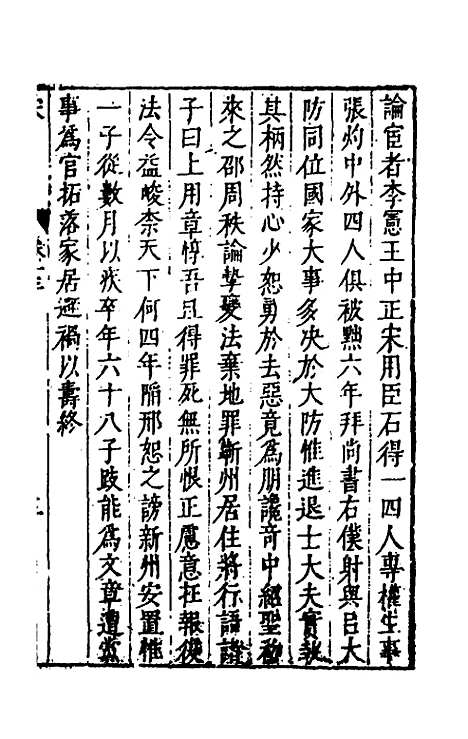 論宦者李憲王中正宋用臣石得一四人專權生事
張灼中外四人俱被黜六年拜尚書右僕射與呂大
防同位國家大事多决於大防惟進退士大夫實執
其柄然持心少恕勇於去惡竟爲朋讒竒中紹聖初
來之邵周秩論摯變法棄地罪蘄州居住將行語諸
子曰上用章惇吾且得罪死無所恨正慮意在報復
法令益峻柰天下何四年陷邢恕之謗新州安置惟
一子從數月以疾卒年六十八子跂能爲文章遭黨
事爲官拓落家居避禍以壽終